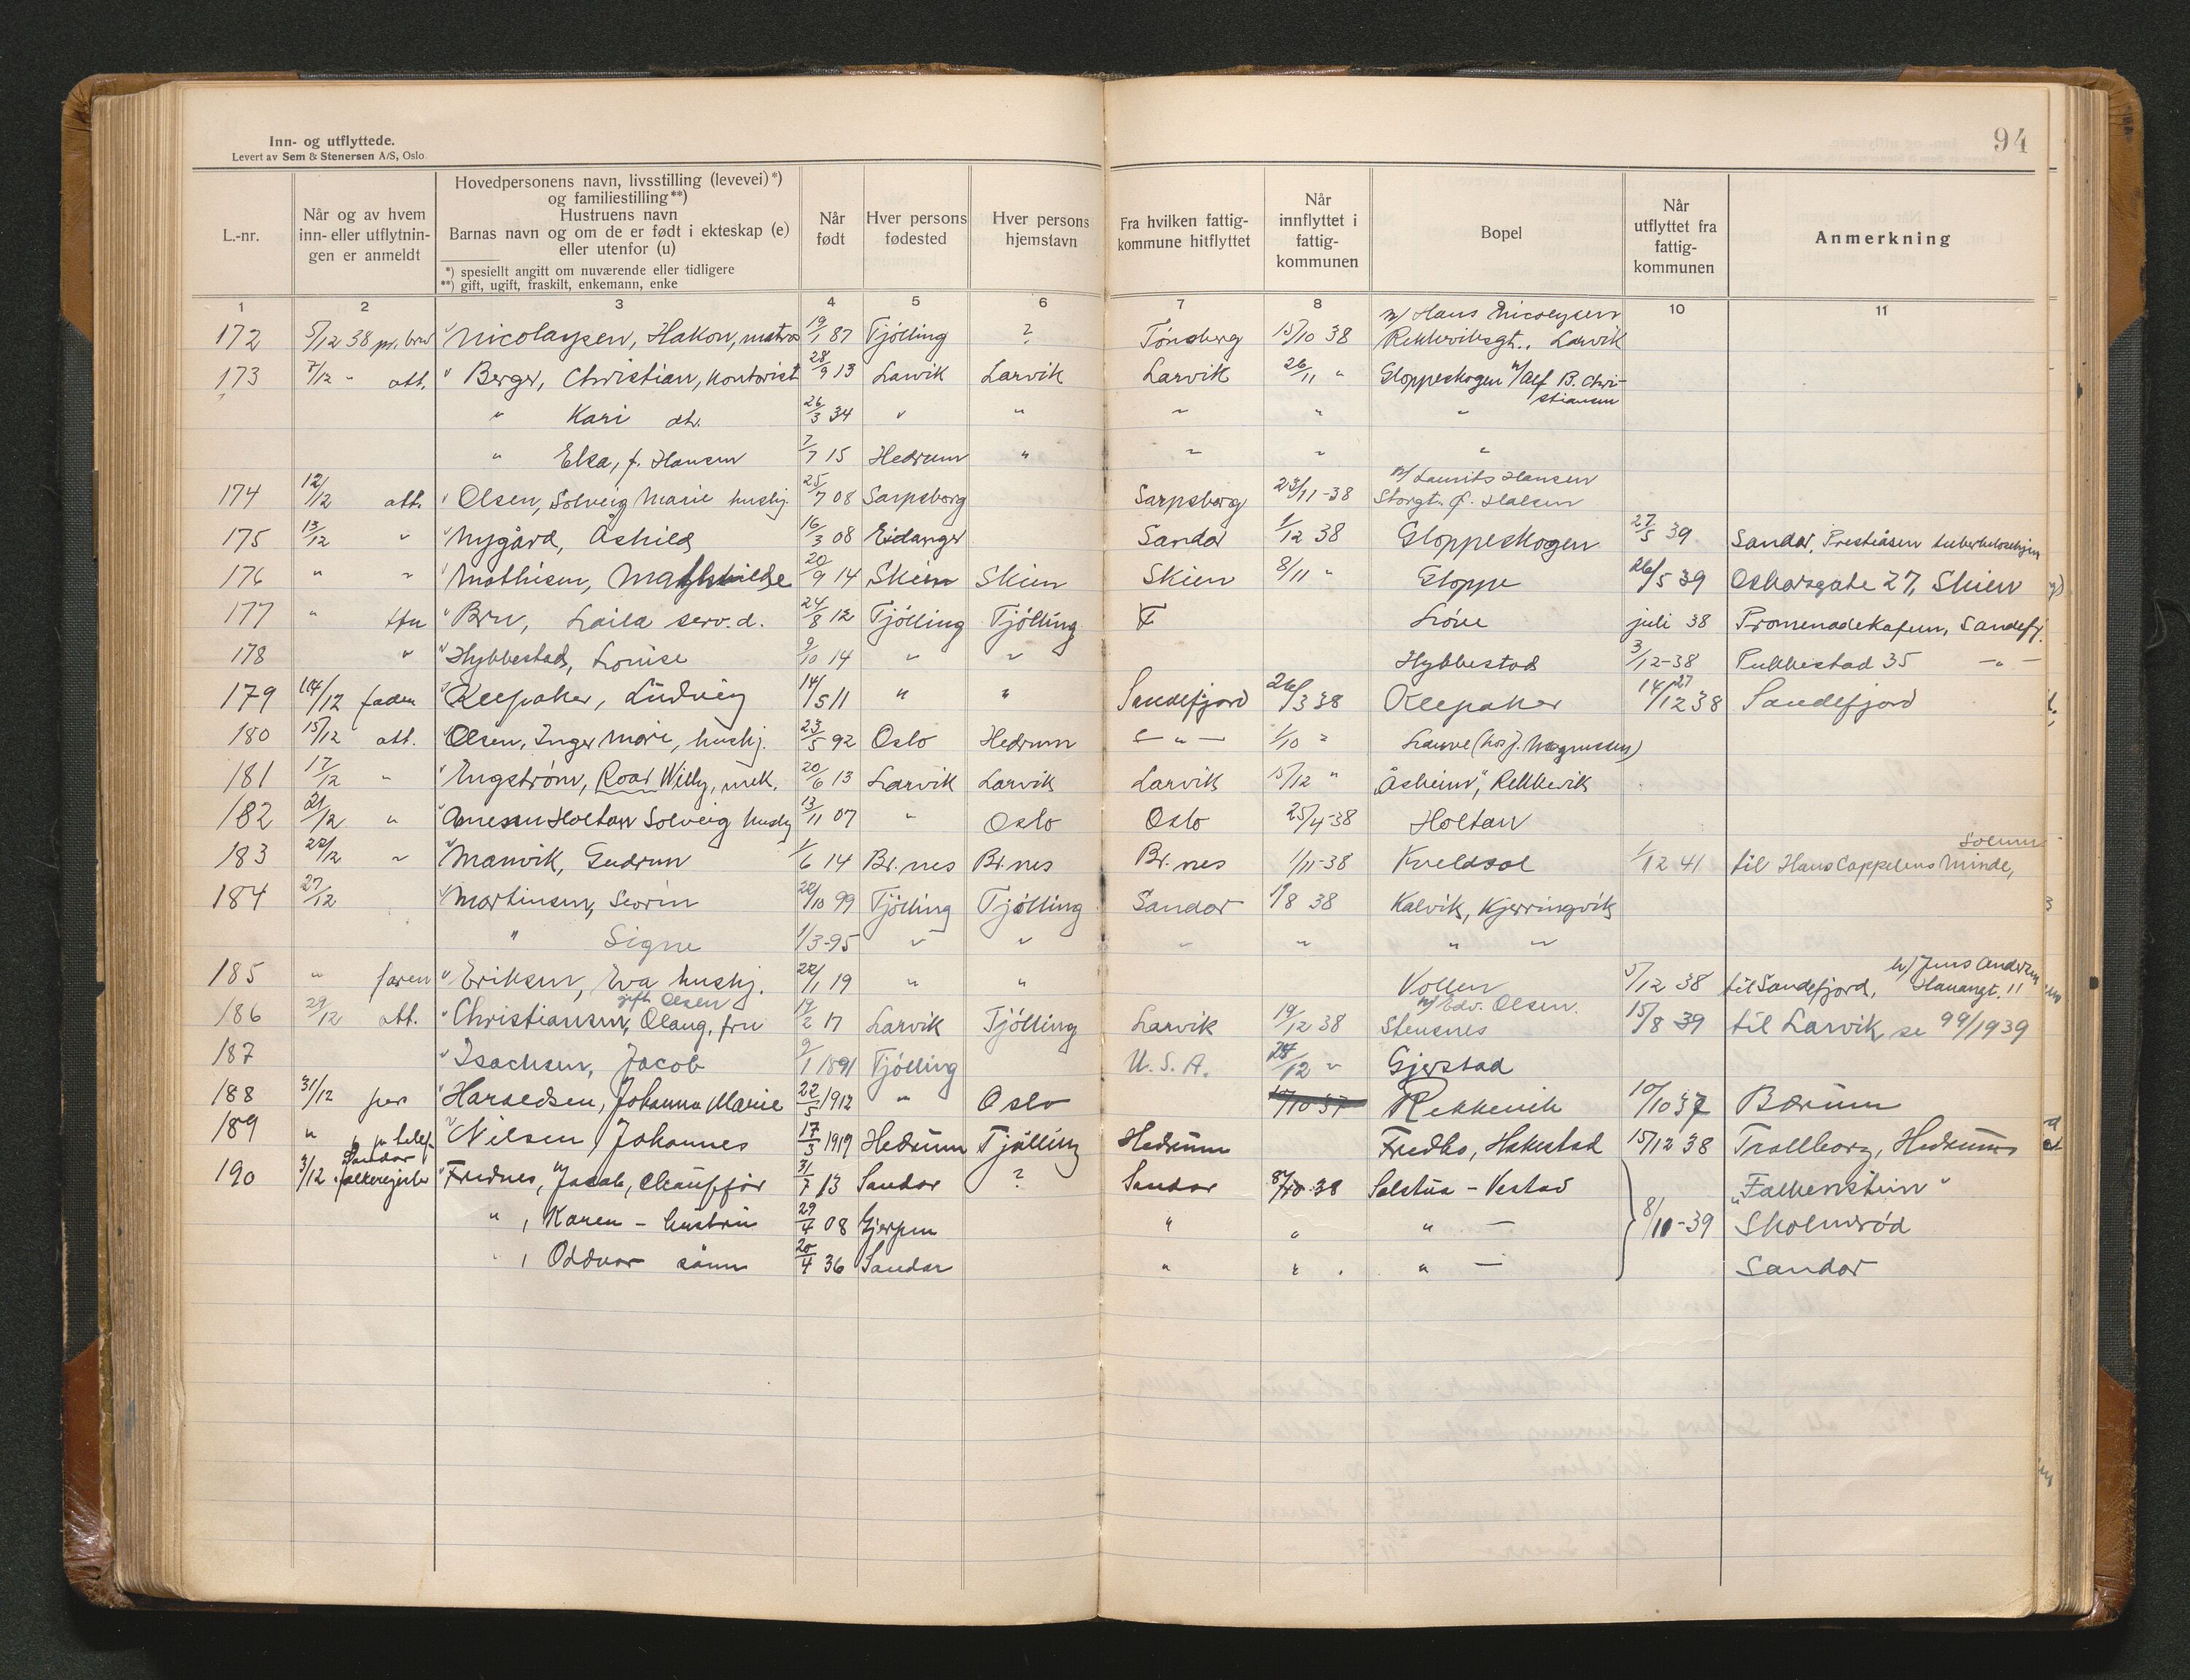 Inn- og utflyttede.
Levert av Sem & Stenersen A/S, Oslo
94
L.-nr.
Når og av hvem inn- eller utflytningen er anmeldt
Hovedpersonens navn, livsstilling (levevei)*)
og familiestilling**)
Hustruens navn
Barnas navn og om de er født i ekteskap (e)
eller utenfor (u)
*) spesiellt angitt om nuværende eller tidligere
**) gift, ugift, fraskilt, enkemann, enke
Når født
Hver persons fødested
Hver persons hjemstavn
Fra hvilken fattigkommune hitflyttet
Når innflyttet i fattigkommunen
Bopel
Når utflyttet fra fattigkommunen
Anmerkning
1 2 3 4 5 6 7 8 9 10 11
172 5/12 38 pr. brev " Nicolaysen, Hakon, matros 19/1 87 Tjölling ? Tönsberg 15/10 38 v/ Hans Nicolaysen Rekkeviksgt., Larvik
173 7/12 " att. " Berger, Christian, kontorist 28/9 13 Larvik Larvik Larvik 26/11 " Gloppeskogen v/ Alf B. Christiansen
" Kari dtr. 26/3 34 " " " " "
" Elsa, f. Hansen 7/7 15 Hedrum " " " "
174 12/12 att. " Olsen, Solveig Marie hushj. 25/7 08 Sarpsborg Sarpsborg 23/11-38 v/ Laurits Hansen Storgt. Ö. Halsen
175 13/12 " " Nygård, Åshild 16/3 08 Eidanger Sandar 1/12 38 Gloppeskogen 27/5 39 Sandar, Preståsen tuberkulosehjem
176 " " " Mathisen, Mathilde 20/9 14 Skien Skien Skien 8/11 " Gloppe 26/5 39 Oskarsgate 27, Skien
177 " " Bru, Laila serv.d. 24/8 12 Tjölling Tjölling Löve juli 38 Promenadekafeen, Sandefj.
178 " " Hybbestad, Louise 9/10 14 " " Hybbestad 3/12-38 Pukkestad 35 - " -
179 14/12 faderen " Kleppaker, Ludvig 14/5 11 " " Sandefjord 26/3 38 Kleppaker 14/12 38 Sandefjord
180 15/12 att. " Olsen, Inger Marie, hushj. 23/5 92 Oslo Hedrum - " - 1/10 " Lauve (hos J. Magnussen)
181 17/12 " " Engström, Roar Willy, mek. 20/6 13 Larvik Larvik Larvik 15/12 " "Åsheim", Rekkevik
182 21/12 " Holtan Solveig hushj 13/11 07 " Oslo Oslo 25/4-38 Holtan
183 22/12 " " Manvik, Gudrun 1/6 14 Br.nes Br.nes Br.nes 1/11-38 Kveldsol 1/12 41 til Hans Cappelens Minde, Solum
184 27/12 " Martinsen, Sevrin 22/10 99 Tjölling Tjölling Sandar 1/8 38 Kalvik, Kjerringvik
" Signe 1/3-95 " " " " " "
185 " faren " Eriksen, Eva hushj. 22/1 19 " " Vollen 5/12 38 til Sandefjord, h/ Jens Andersen Hauangt. 11
186 29/12 att. " Christiansen, gift Olsen Olaug, fru 19/2 17 Larvik Tjölling Larvik 19/12 38 v/ Edv. Olsen. Stensnes 15/8 39 til Larvik, se 99/1939
187 " Isachsen, Jacob 9/1 1891 Tjölling U.S.A. 28/12 " Gjerstad
188 31/12 per " Haraldsen, Johanna Marie 22/5 1912 " Oslo 10/10 37 Rekkevik 10/10 37 Bærum
189 " pr telef. " Nilsen, Johannes 17/3 1919 Hedrum Tjölling Hedrum Fredbo, Hakestad 15/12 38 Trollborg, Hedrum
190 3/12 Sandar folkeregister " Frednes, Jacob, Chauffør 31/7 13 Sandar ? Sandar 8/10 38 Solstua - Vestad 8/10-39 "Falkenstein"
" , Karen - hustru 29/4 08 Gjerpen " " " - Skolmröd
" , Oddvar sønn 20/4 36 Sandar " " " - Sandar